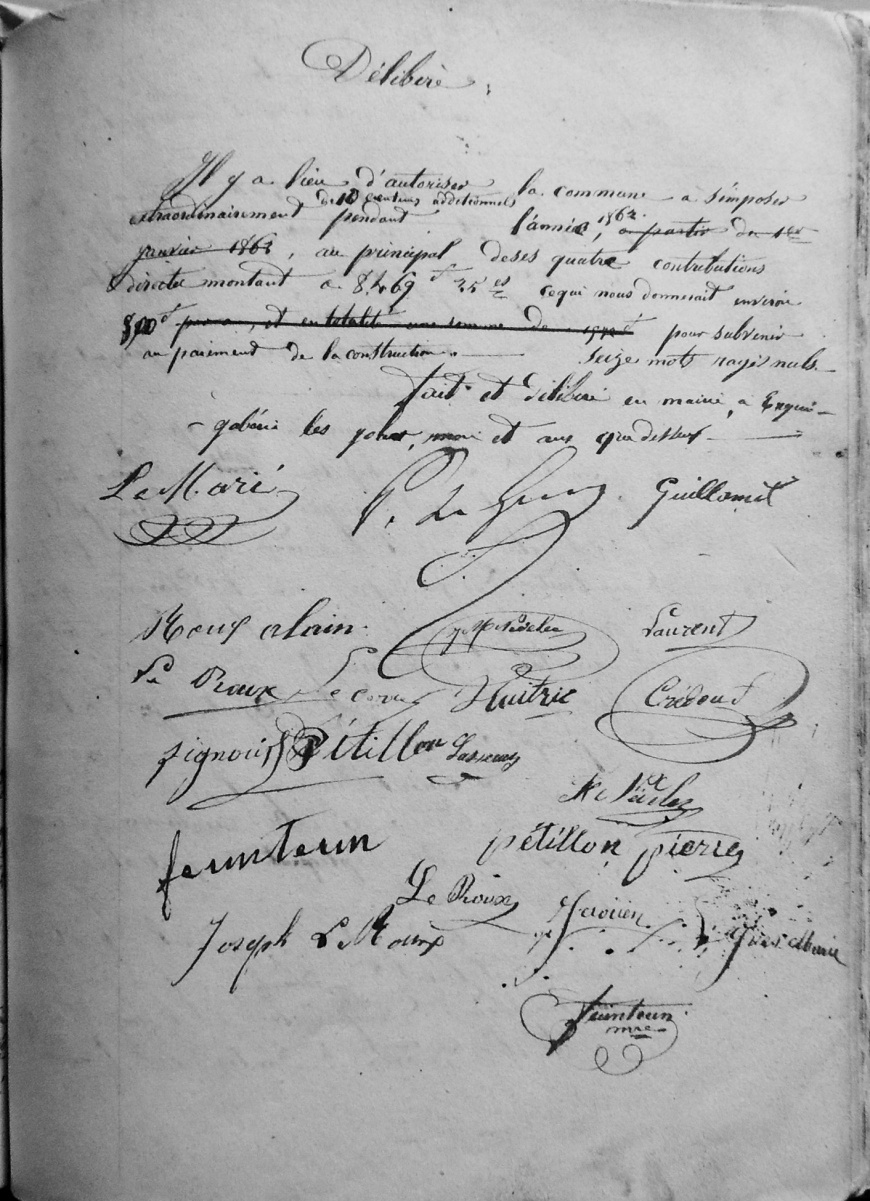 Délibéré,
Il y a lieu d'autoriser la commune a s'imposer
de 10 centimes additionnels
extraordinairement pendant l'année 1862, a partir du 1er
janvier 1863, au principal deses quatre contributions
directes montant a 8,469 f 35 es cequi nous donnerait environ
800 f et en totalité une somme de pour subvenir
au paiement de la construction. Seize mots rayés nuls.
fait et délibéré en mairie, a Ergué-
-gabéric les jour, mois et an que dessus.
Le Marié P. Le Guillamet
Roux alain Nédelec Laurent
Le Roux Huitric Crédou
Signour Pétillon
feunteun pétillon pierre
Le Roux
Joseph Le Roux Yves Marie
feunteun
mre